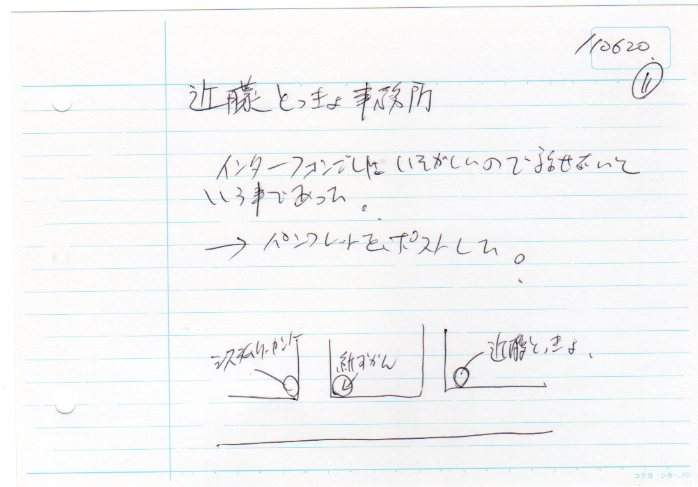 110620
⑪
近藤とっきょ事務所
インターフォンごしはいそがしいので話せないと
いう事であった。
→ パンフレットをポストした。
紙すがん
近藤とっきょ、
コクヨ シカ-